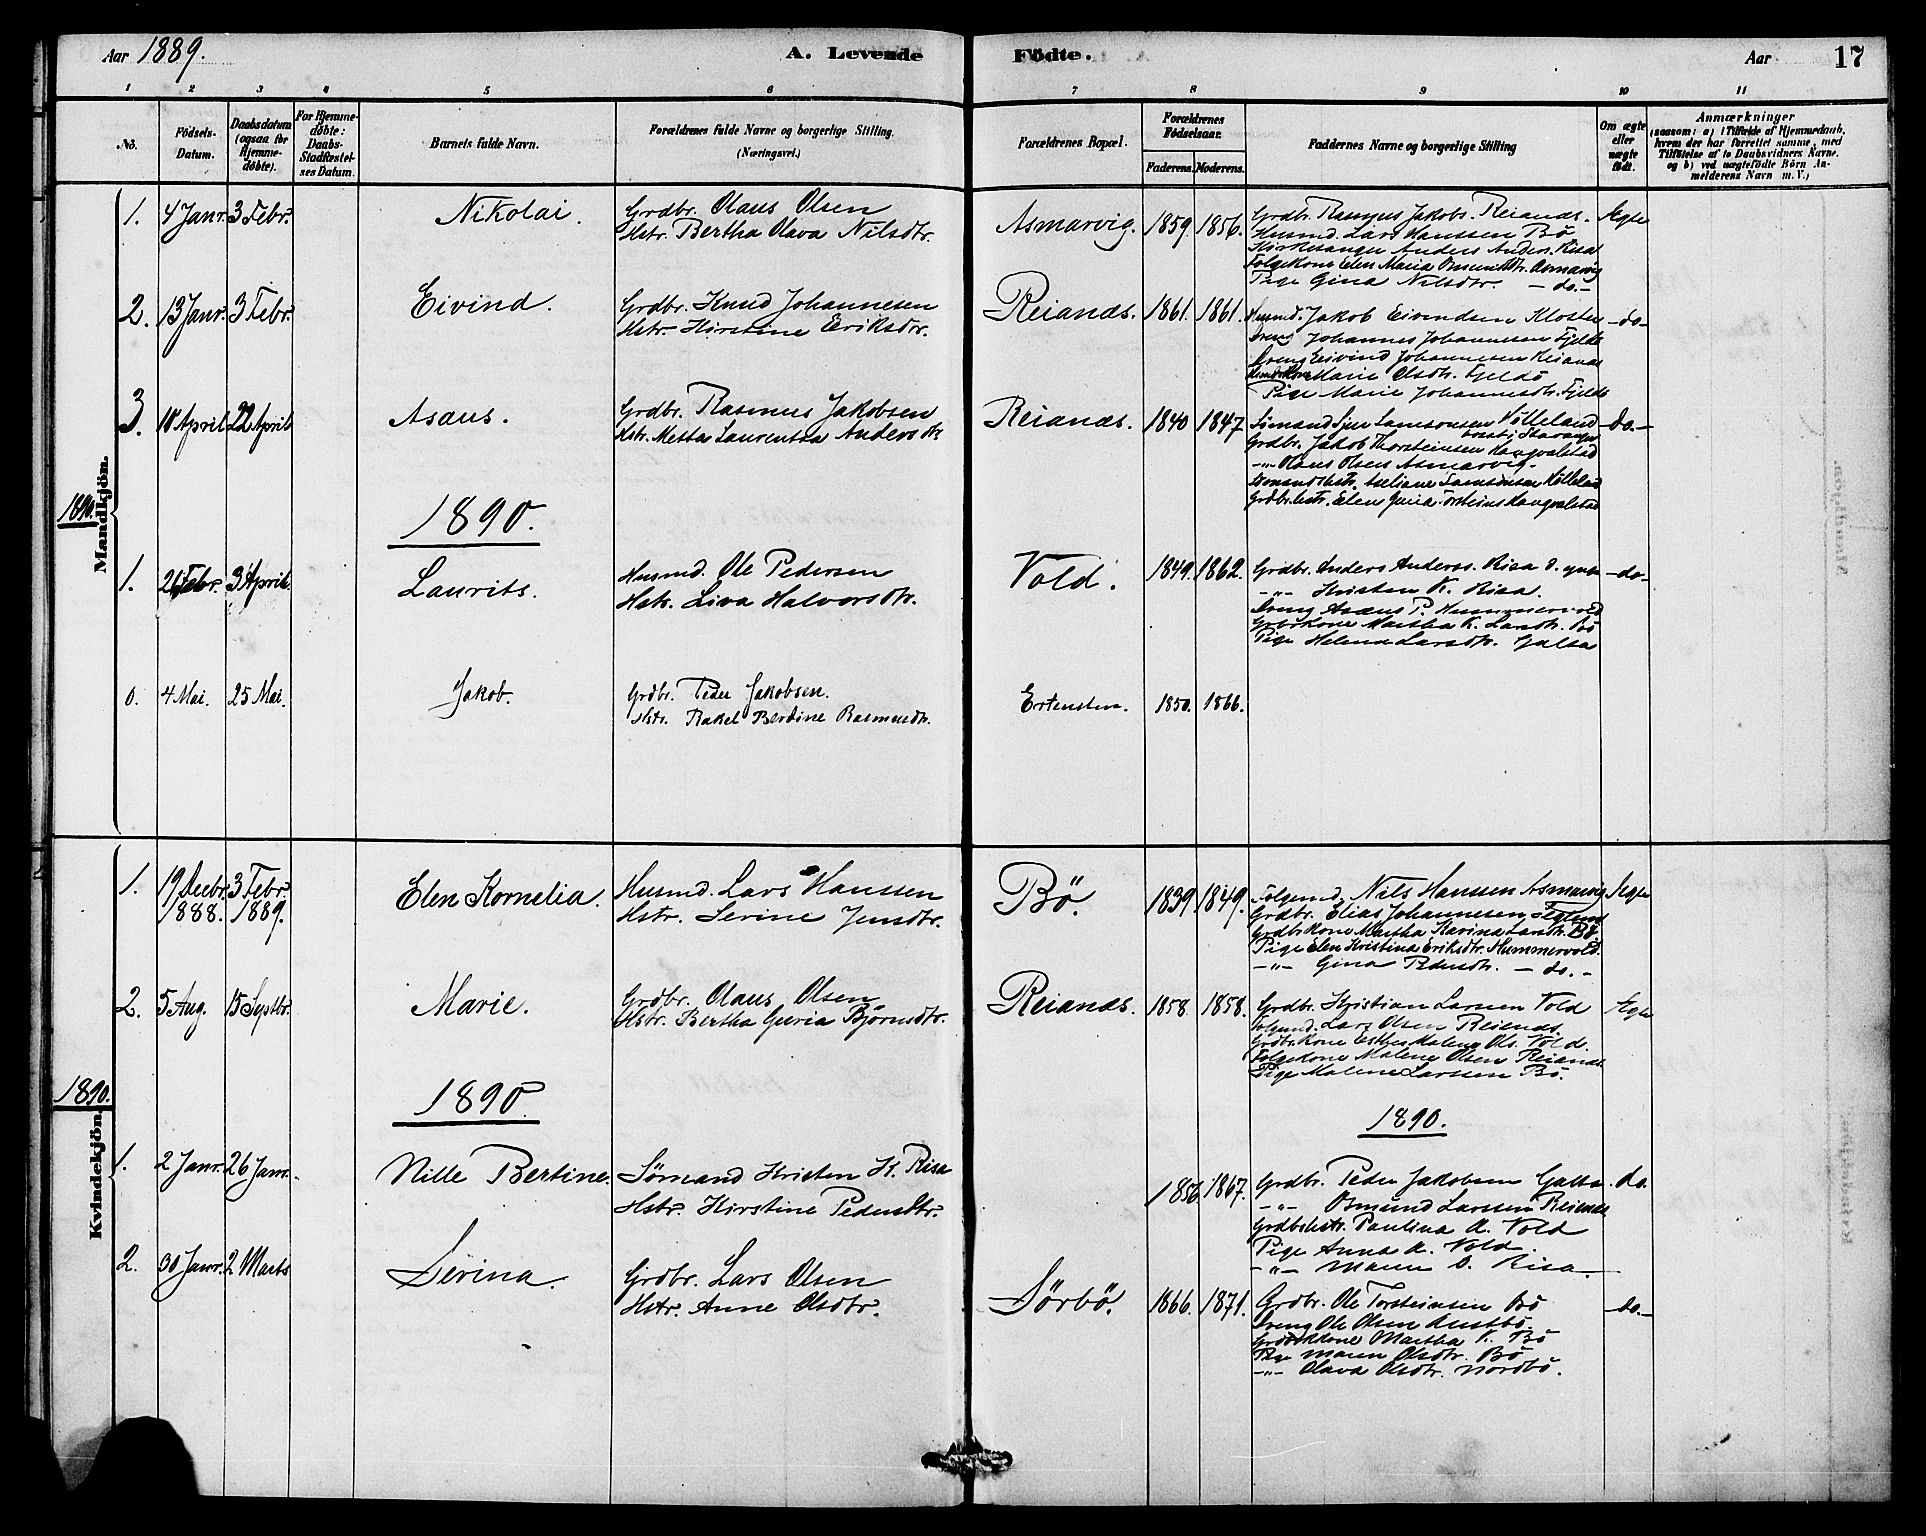 Aar 1889.
A. Levende
Födte.
Aar
17
1 2 3 4 5 6 7 8 9 10 11
No.
Födsels-
Datum.
Daabsdatum
(ogsaa for
Hjemme-
döbte).
For Hjemme-
döbte:
Daabs-
Stadfæstel-
ses Datum.
Barnets fulde Navn.
Forældrenes fulde Navne og borgerlige Stilling.
(Næringsvei.)
Forældrenes Bopæl.
Forældrenes
Födselsaar.
Faderens. Moderens.
Faddernes Navne og borgerlige Stilling
Om ægte
eller
uægte
födt.
Anmærkninger
(saasom: a) i Tilfælde af Hjemmedaab,
hvem der har forrettet samme, med
Tilföielse af to Daabsvidners Navne.
og b) ved uægtefödte Börn An-
melderens Navn m. V.)
Mandkjön.
1. 4 Janr. 3 Febr. Nikolai. Grdbr. Olaus Olsen
Hstr. Bertha Olava Nilsdtr.
Asmarvig. 1859. 1856.
Grdbr. Rasmus Jakobs. Reianæs.
Husmd. Lars Hanssen Bö
Kirkesanger Anders Anders. Risa
Folgekone Elen Maria Osmundsdtr. Asmarvig
Pige Gina Nilsdtr. - do. -
Ægte
2. 13 Janr. 3 Febr. Eivind. Grdbr. Knud Johannesen
Hstr. Kirstine Eriksdtr.
Reianæs. 1861. 1861.
Husmd. Jakob Eivendsen Kloster
Dreng Johannes Johannesen Fjelde
Dreng Eivind Johannesen Reianæs
Marie Olsdtr. Fjelde
Pige Marie Johannesdtr. Fjelde
- do -
3. 18 April 22 April Asaus. Grdbr. Rasmus Jakobsen
Hstr. Metta Laurentza Andersdtr.
Reianæs. 1840 1847
Sömand Samsonsen Völleland
bosat i Stavanger
Grdbr. Jakob Thorsteinsen Haugvalstad
-"- Olaus Olsen Asmarvig.
Sömandshstr. Samsonsen Völleland
Grdbr.hstr. Elen Torsteins Haugvalstad
- do. -
1890.
1890.
1. 26 Febr. 3 April Laurits. Husmd. Ole Pedersen
Hstr. Liva Halvorsdtr.
Vold. 1849. 1862.
Grdbr. Anders Anderss. Risa d. yngr.
-"- Kristen K. Risa.
Dreng Asaus P. Hummervold
Grdbrkone Martha K. Larsdtr. Bö
Pige Helene Larsdtr. Galta
- do -
0. 4 Mai. 25 Mai. Jakob. Grdbr. Peder Jakobsen.
Hstr. Rakel Berdine Rasmusdtr.
Ertensten. 1850. 1866.
Kvindekjön.
1. 19 Decbr. 1888. 3 Febr. 1889. Elen Kornelia. Husmd. Lars Hanssen
Hstr. Serine Jensdtr.
Bö. 1839 1849.
Folgemd. Nils Hanssen Asmarvig
Grdbr. Elias Johannesen
Grdbrkone Martha Karina Larsdtr. Bö
Pige Elen Kristina Eriksdtr. Hummervold.
-"- Gina Pedersdtr. - do. -
Ægte
2. 5 Aug. 15 Septbr. Marie. Grdbr. Olaus Olsen
Hstr. Bertha Guria Björnsdtr.
Reianæs. 1858. 1858.
Grdbr. Kristian Larsen Vold
Folgemd. Lars Olsen Reianæs.
Grdbrkone Esther Malene Ols. Vold.
Folgekone Malene Olsen Reianæs.
Pige Malene Larssen Bö.
Ægte
1890.
1890
1890.
1. 2 Janr. 26 Janr. Nille Bertine. Sömand Kristen K. Risa
Hstr. Kirstine Pedersdtr.
1856 1867.
Grdbr. Peder Jakobsen Galta
-"- Osmund Larssen Reianæs
Grdbrhstr. Paulina A. Vold
Pige Anna A. Vold.
-"- Maren O. Risa.
do.
2. 30 Janr. 2 Marts Serina. Grdbr. Lars Olsen
Hstr. Anne Olsdtr.
Sörbö. 1866. 1871.
Grdbr. Ole Torsteinsen Bö
Dreng Ole Olsen Austbö.
Grdbrkone Martha K. Bö
Pige Maren Olsdtr. Bö
-"- Olava Olsdtr. Nordbö.
- do. -